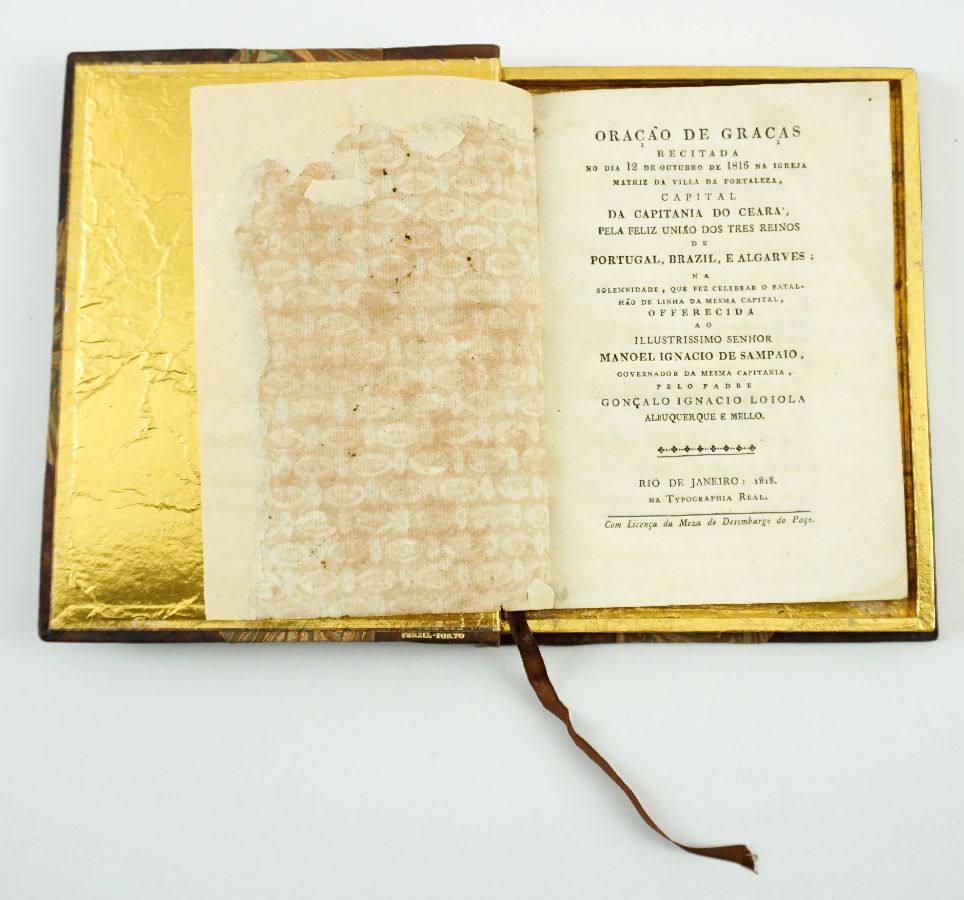 ORAÇÃO DE GRAÇAS
RECITADA
NO DIA 12 DE OUTUBRO DE 1816 NA IGREJA
MATRIZ DA VILLA DA FORTALEZA,
CAPITAL
DA CAPITANIA DO CEARA',
PELA FELIZ UNIÃO DOS TRES REINOS
DE
PORTUGAL, BRAZIL, E ALGARVES:
NA
SOLEMNIDADE, QUE FEZ CELEBRAR O BATAL-
HÃO DE LINHA DA MESMA CAPITAL,
OFFERECIDA
AO
ILLUSTRISSIMO SENHOR
MANOEL IGNACIO DE SAMPAIO,
GOVERNADOR DA MESMA CAPITANIA,
PELO PADRE
GONÇALO IGNACIO LOIOLA
ALBUQUERQUE E MELLO.
RIO DE JANEIRO: 1818.
NA TYPOGRAPHIA REAL.
Com Licença da Meza do Desembargo do Paço.
FERSIL-PORTO